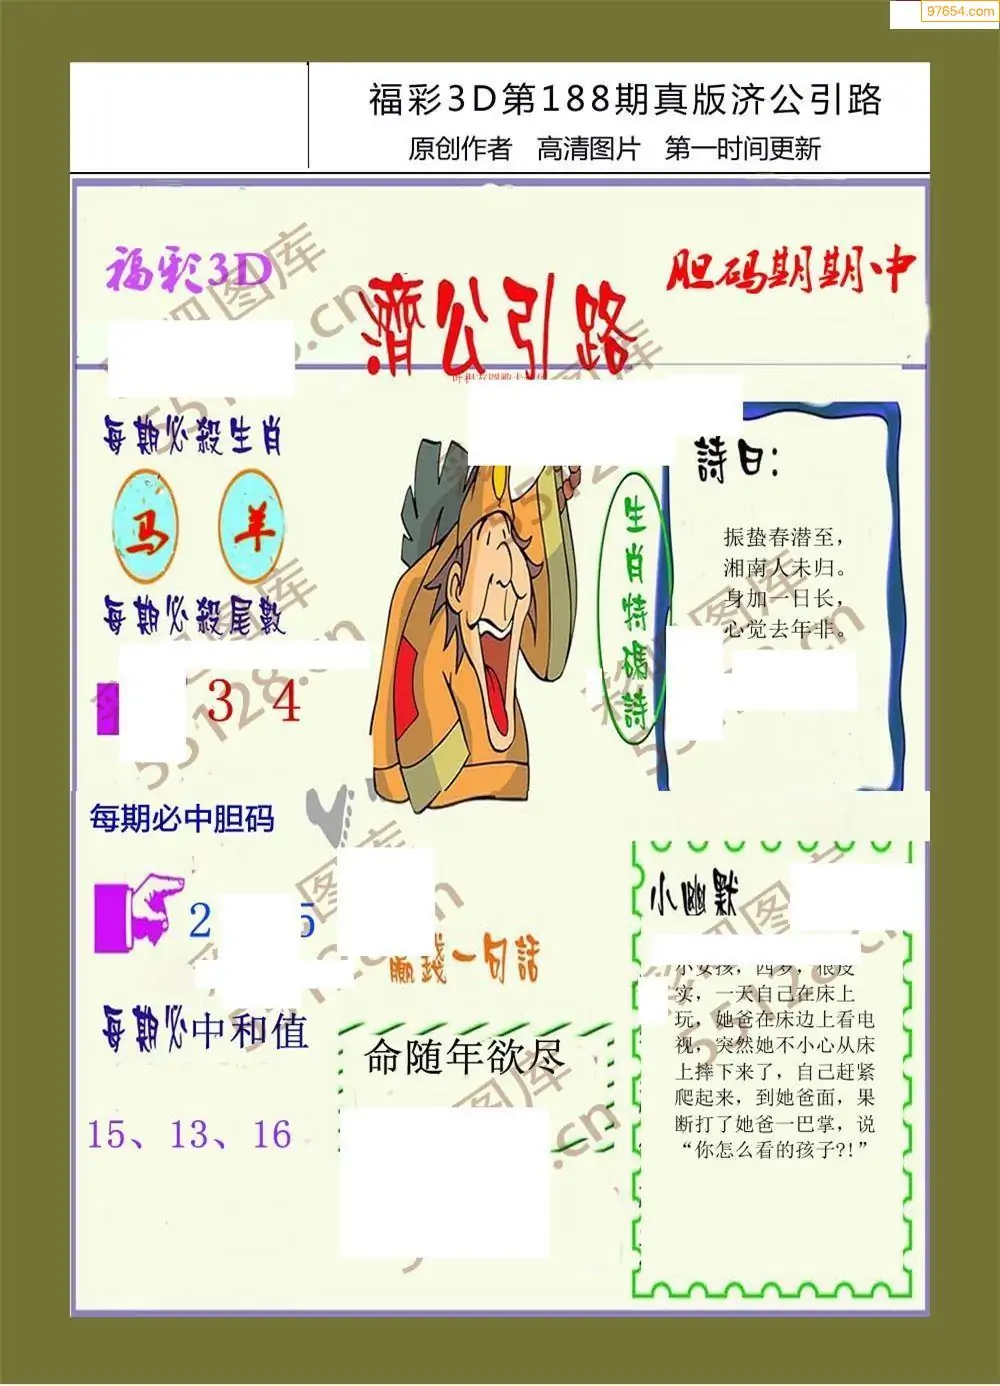 97654.com
福彩3D第188期真版济公引路
原创作者 高清图片 第一时间更新
福彩3D
濟公引路
胆码期期中
每期必殺生肖
马 羊
每期必殺尾數
3 4
每期必中胆码
2 5
每期必中和值
15、13、16
生肖特碼詩
詩曰：
振蛰春潜至，
湘南人未归。
身加一日长，
心觉去年非。
赢钱一句話
命随年欲尽
小幽默
小女孩，四岁，很皮
实，一天自己在床上
玩，她爸在床边上看电
视，突然她不小心从床
上摔下来了，自己赶紧
爬起来，到她爸面，果
断打了她爸一巴掌，说
“你怎么看的孩子?!”